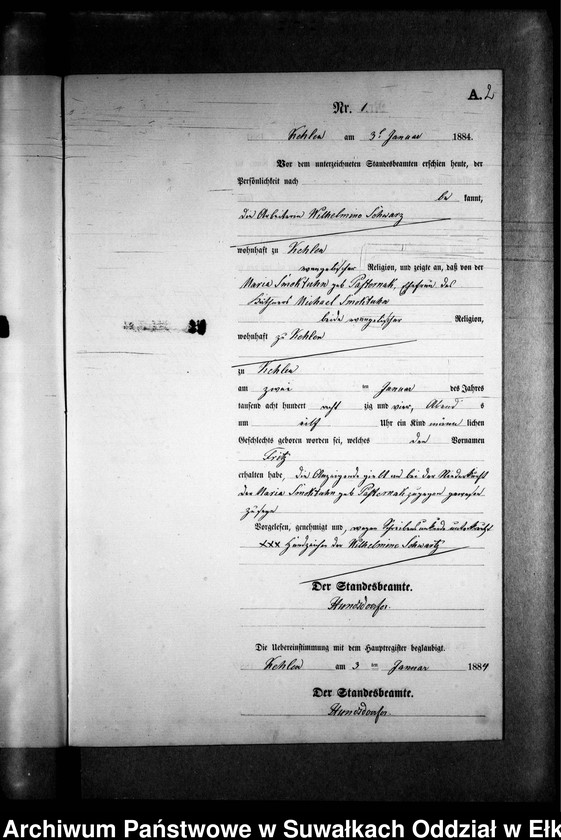 A. 2
Nr. 1.
Kehlen am 3t Januar 1884.
Vor dem unterzeichneten Standesbeamten erschien heute, der
Persönlichkeit nach
be kannt,
die Arbeiterin Wilhelmine Schwarz
wohnhaft zu Kehlen
evangelischer Religion, und zeigte an, daß von der
Maria Smoktuhn geb Pasternak, Ehefrau des
Michael Smoktuhn
beide evangelischer Religion,
wohnhaft zu Kehlen
zu Kehlen
am zwei ten Januar des Jahres
tausend acht hundert acht zig und vier, Abend s
um Uhr ein Kind männ lichen
Geschlechts geboren worden sei, welches den Vornamen
Fritz
erhalten habe, die Anzeigende giebt an bei der Niederkunft
der Maria Smoktuhn geb Pasternak zugegen gewesen
zu sein
Vorgelesen, genehmigt und, wegen Schreibensunkunde unterkreuzt
xxx Handzeichen der Wilhelmine Schwartz
Der Standesbeamte.
Die Uebereinstimmung mit dem Hauptregister beglaubigt.
Kehlen am 3 ten Januar 1884
Der Standesbeamte.
Archiwum Państwowe w Suwałkach Oddział w Ełk